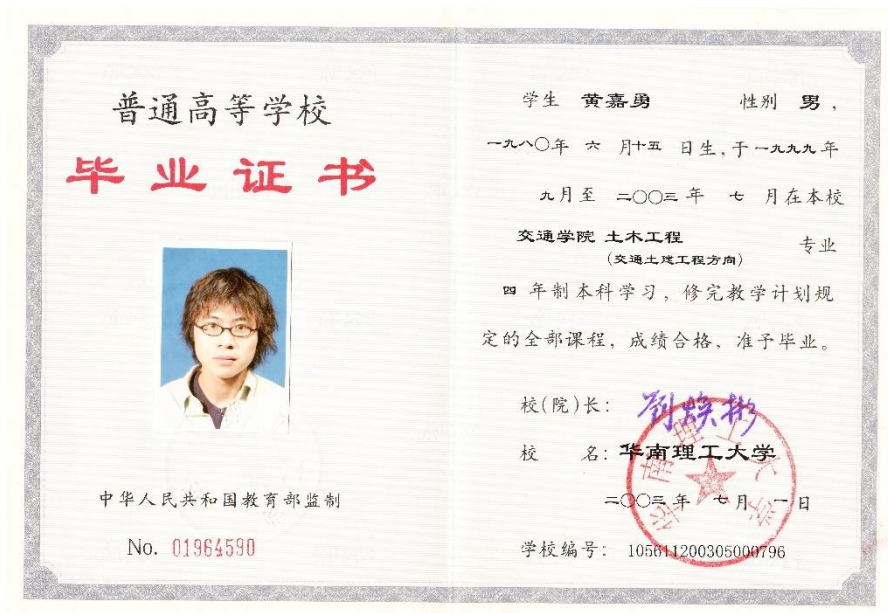 普通高等学校
毕业证书
中华人民共和国教育部监制
No. 01964590
学生 黄嘉勇 性别 男，
一九八〇年 六 月十五 日生，于一九九九年
九月至 二〇〇三年 七 月在本校
交通学院 土木工程 专业
(交通土建工程方向)
四 年制本科学习，修完教学计划规
定的全部课程，成绩合格，准予毕业。
校(院)长： 劉焕彬
校 名：华南理工大学
二〇〇三年 七月 一日
学校编号： 105611200305000796
华南理工大学